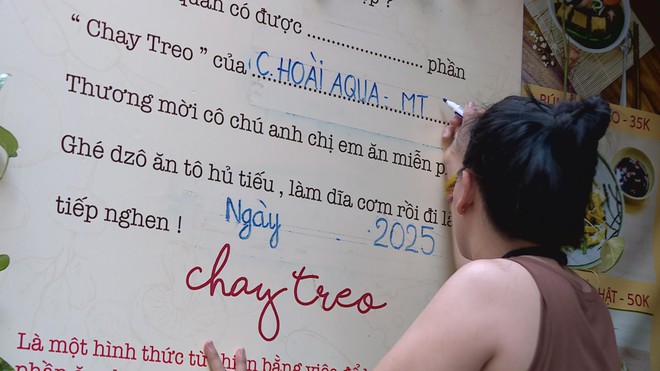 quán có được ........................ phần
“ Chay Treo ” của C. HOÀI AQUA - MT
Thương mời cô chú anh chị em ăn miễn
Ghé dzô ăn tô hủ tiếu , làm dĩa cơm rồi đi
tiếp nghen !
Ngày 2025
chay treo
Là một hình thức từ thiện bằng việc
- 35K
- 50K